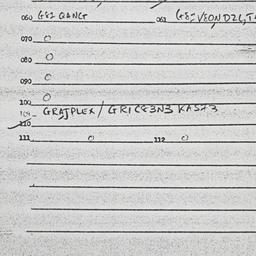 060 G8I QANGT 061 G8I VEOND2L,T
070 O
080 O
090 O
100 O
101 GRAJPLEX / GRIC8E3N3 KAST3
110
111 O 112 O